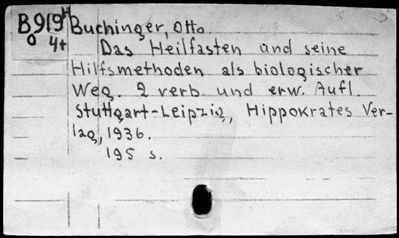 B919M Buchinger, Otto
O 4t
Das Heilfasten und seine
Hilfsmethoden als biologischer
Weg. 2 verb. und erw. Aufl.
Stuttgart-Leipzig, Hippokrates Ver-
lag, 1936.
195 s.